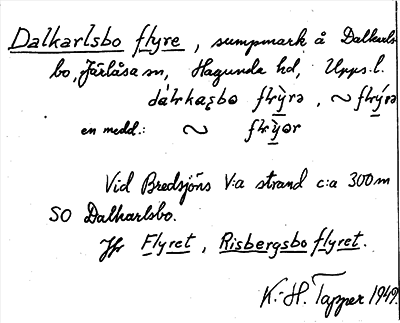 Dalkarlsbo flyre, sumpmark å Dalkarls
bo, Järlåsa sn, Hagunda hd, Upps. l.
en medd.: ~
Vid Bredsjöns V:a strand c:a 300 m
SO Dalkarlsbo.
Jfr Flyret, Risbergsbo flyret.
K.-H. Tapper 1949.